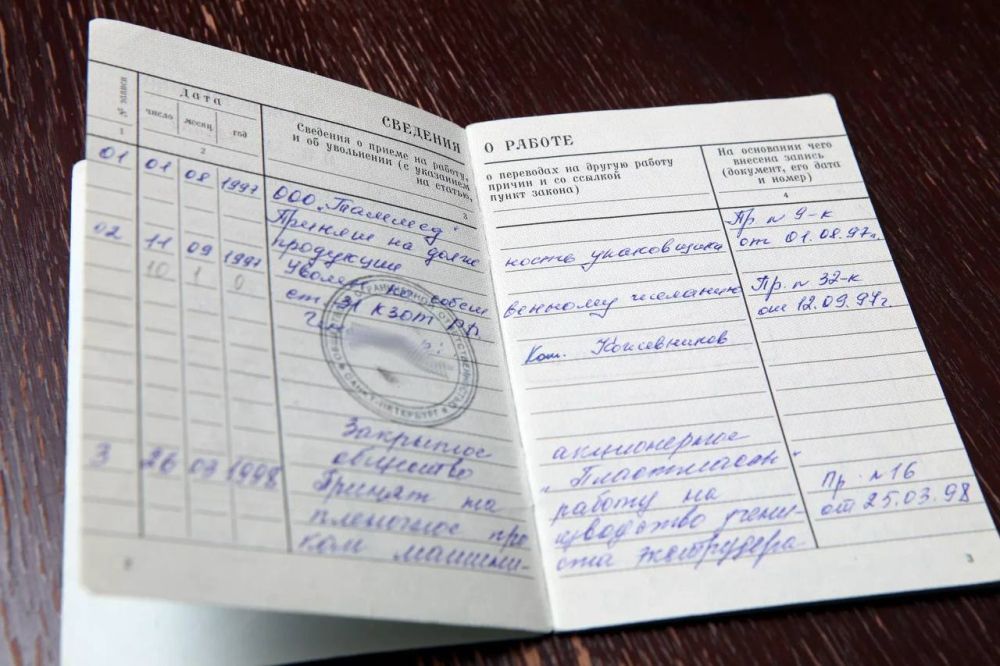 СВЕДЕНИЯ О РАБОТЕ
№ записи
Дата
число месяц год
Сведения о приеме на работу,
и об увольнении (с указанием
на статью,
о переводах на другую работу
причин и со ссылкой
пункт закона)
На основании чего
внесена запись
(документ, его дата
и номер)
1 2 3 4
ООО „Таммед"
01 01 08 1997 Принят на должность упаковщика Пр n 9-к
продукции от 01.08.97г.
02 11 09 1997 Уволен по собственному желанию Пр. n 32-к
ст. 31 КЗОТ РФ. от 12.09.97г.
10 1 0
Кожевников
САНКТ-ПЕТЕРБУРГ
Закрытое акционерное
общество „Пластмассы"
3 26 03 1998 Принят на работу на Пр. n 16
пленочное производство учени- от 25.03.98
ком машини- ста экструдера
3